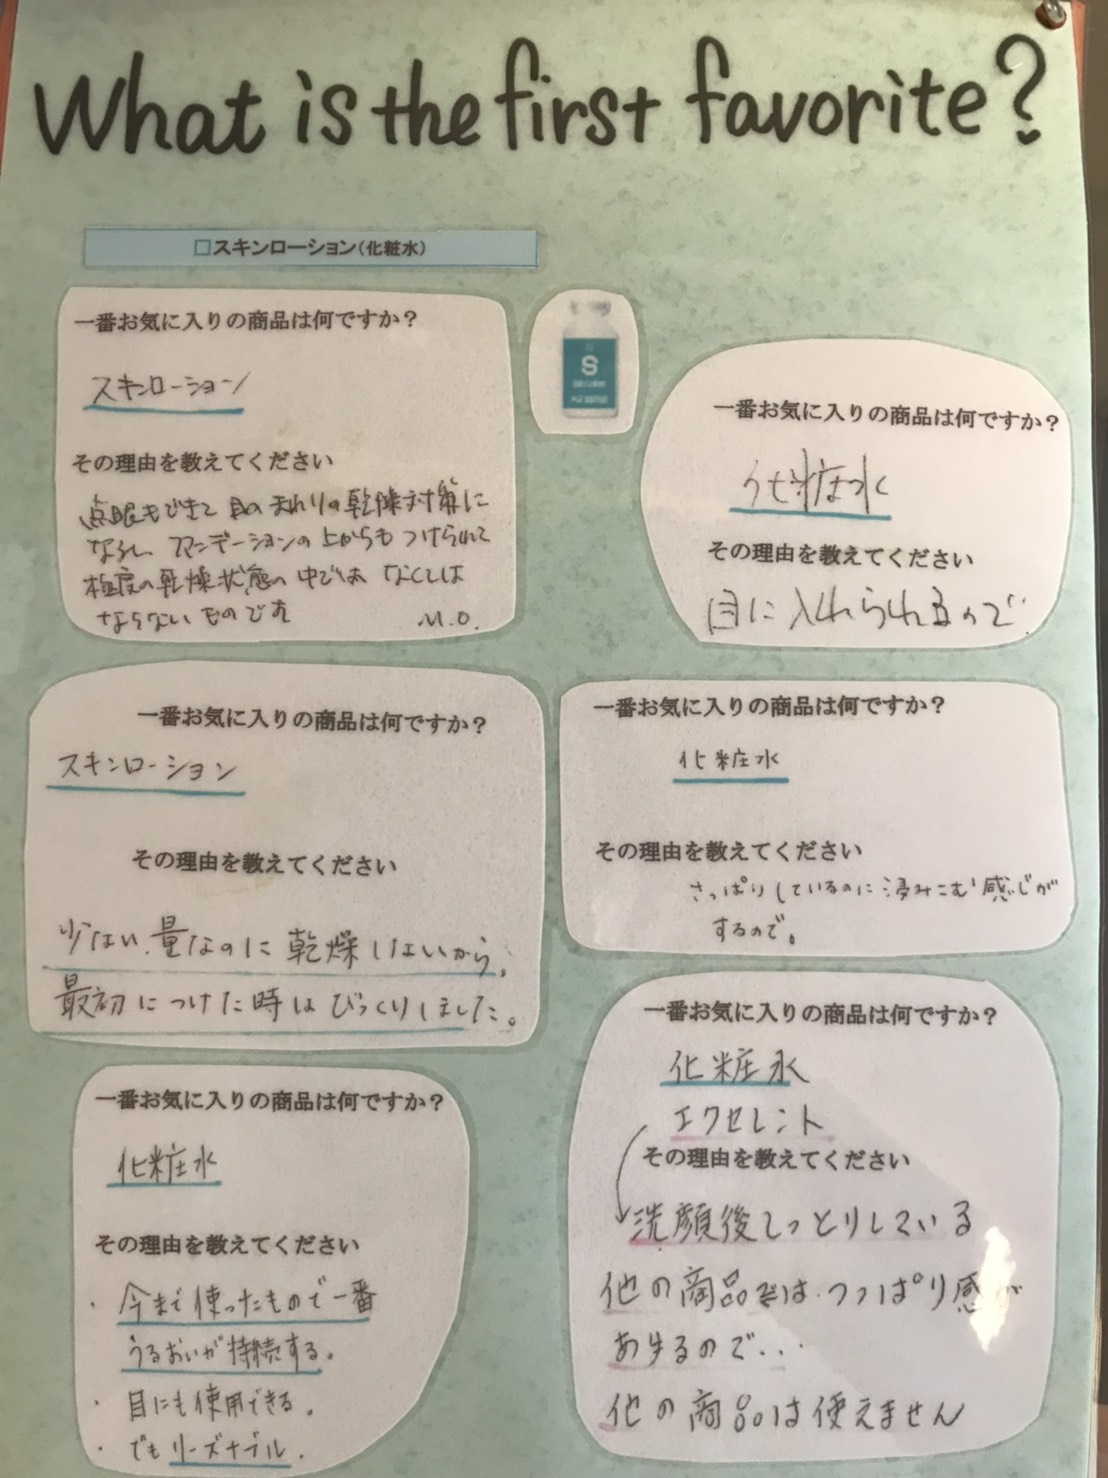 What is the first favorite?
□スキンローション(化粧水)
一番お気に入りの商品は何ですか?
スキンローション
その理由を教えてください
点眼もできて 目のまわりの乾燥対策に
なるし、ファンデーションの上からもつけられて
極度の乾燥状態の中では なくては
ならないものです M.O.
S
一番お気に入りの商品は何ですか?
化粧水
その理由を教えてください
目に入れられるので
一番お気に入りの商品は何ですか?
スキンローション
その理由を教えてください
少ない量なのに乾燥しないから。
最初につけた時はびっくりしました。
一番お気に入りの商品は何ですか?
化粧水
その理由を教えてください
さっぱりしているのに浸みこむ感じが
するので。
一番お気に入りの商品は何ですか?
化粧水
その理由を教えてください
・今まで使ったもので一番
うるおいが持続する。
・目にも使用できる。
・でもリーズナブル.
一番お気に入りの商品は何ですか?
化粧水
エクセレント
その理由を教えてください
洗顔後しっとりしている
他の商品では つっぱり感が
あ
るので・・・
他の商品は使えません